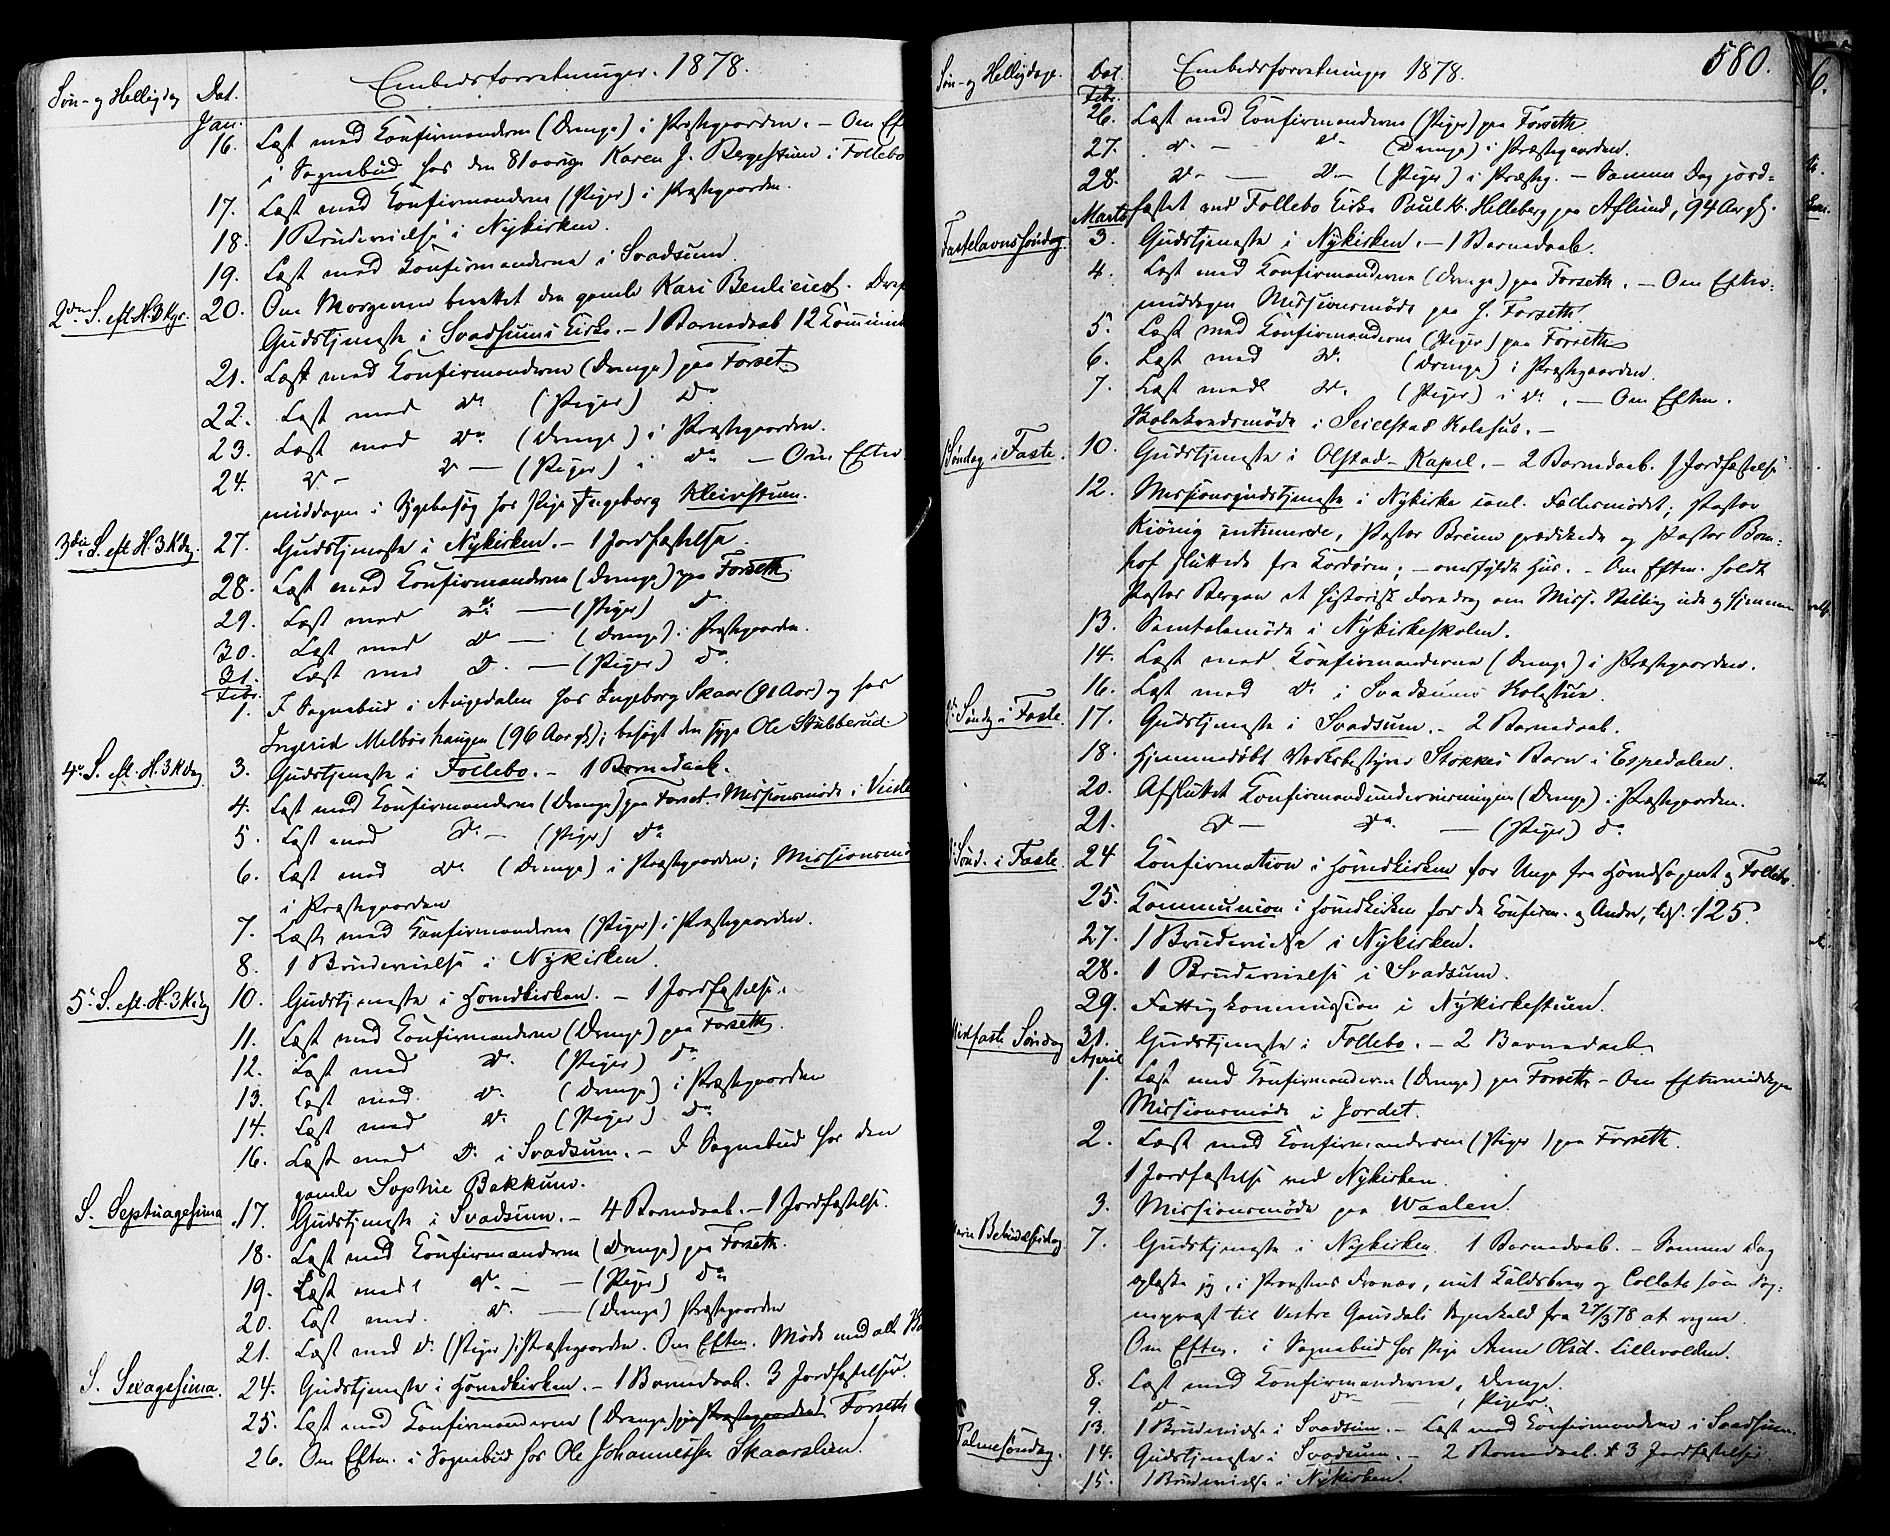 Søn- og Helligdag Dat. Embedsforretninger. 1878.
Jan.
16. Læst med Konfirmanderne (Drenge) i Præstegaarden. – Om Eft
i Sognebud hos den 81 aarige Karen J. Bergestuen i Follebo
17. Læst med Konfirmanderne (Piger) i Præstegaarden.
18. 1 Brudevielse i Nykirken.
19. Læst med Konfirmanderne i Svadsum.
2den S. eft. H. 3 Kgr. 20. Om Morgenen berettet den gamle Kari Benlieiet.
Gudstjeneste i Svadsums Kirke. – 1 Barnedaab 12 Kommuni
21. Læst med Konfirmanderne (Drenge) paa Forset.
22. Læst med Do (Piger) Do
23. Læst med Do (Drenge) i Præstegaarden.
24. Do – Do – (Piger) i Do – Om Efter
middagen i Sygebesøg hos Pige Ingeborg Kleivstuen.
3die S. eft. H. 3 Kdg. 27. Gudstjeneste i Nykirken. – 1 Jordfæstelse.
28. Læst med Konfirmanderne (Drenge) paa Forseth.
29. Læst med Do — (Piger) Do
30. Læst med Do — (Drenge) i Præstegaarden.
31. Læst med D. — (Piger) Do
Febr.
1. I Sognebud i Augedalen hos Ingeborg Skaar (91 Aar) og hos
Ingerid Melbøshaugen (96 Aar gl.); besøgt den syge Ole Stubberud.
4e S. eft. H. 3 Kdag 3. Gudstjeneste i Follebo. – 1 Barnedaab.
4. Læst med Konfirmanderne (Drenge) paa Forset. Missionsmøde i
5. Læst med Do – (Piger) Do
6. Læst med Do (Drenge) i Præstegaarden; Missionsmø
i Præstegaarden
7. Læst med Konfirmanderne (Piger) i Præstegaarden.
8. 1 Brudevielse i Nykirken.
5e S. eft. H. 3 Kdg 10. Gudstjeneste i Hovedkirken. – 1 Jordfæstelse.
11. Læst med Konfirmanderne (Drenge) paa Forseth.
12. Læst med Do (Piger) Do
13. Læst med Do (Drenge) i Præstegaarden
14. Læst med Do (Piger) Do
16. Læst med Do i Svadsum. – I Sognebud hos den
gamle Sophie Bakkum.
S. Septuagesima 17. Gudstjeneste i Svadsum. – 4 Barnedaab. – 1 Jordfæstelse.
18. Læst med Konfirmanderne (Drenge) paa Forseth.
19. Læst med Do – — (Piger) Do
20. Læst med Do — (Drenge) Præstegaarden
21. Læst med Do (Piger) i Præstegaarden. Om Efterm. Møde med alle
S. Sexagesima. 24. Gudstjeneste i Hovedkirken. – 1 Barnedaab. 3 Jordfæstelser.
25. Læst med Konfirmanderne (Drenge) paa Forseth
26. Om Efterm. i Sognebud hos Ole Johannessen Skaarslien.
580.
Søn- og Helligdage. Dat. Embedsforretninger 1878.
Febr.
26. Læst med Konfirmanderne (Piger) paa Forseth.
27. Do – Do (Drenge) i Præstegaarden.
28. Do — Do – (Piger) i Præsteg. – Samme Dag jord-
fæstet ved Follebo Kirke Paul Kr. Helleberg paa Aflund, 94 Aar gl.
Marts
Fastelavnssøndag. 3. Gudstjeneste i Nykirken. – 1 Barnedaab.
4. Læst med Konfirmanderne (Drenge) paa Forseth. – Om Efter-
middagen Missionsmøde paa J. Forseth.
5. Læst med Konfirmanderne (Piger) paa Forseth
6. Læst med Do (Drenge) i Præstegaarden.
7. Læst med Do (Piger) i Do. – Om Efterm.
Skolekredsmøde i Seielstad Skolehus. –
Søndag i Faste. 10. Gudstjeneste i Olstad-Kapel. – 2 Barnedaab. 1 Jordfæstelse
12. Missionsgudstjeneste i Nykirke i anl. Fællesmødet; Pastor
Kiønig intimerede, Pastor Bruun prædikede og Pastor Bom-
hof sluttede fra Kordøren; – overfyldt Hus. – Om Efterm. holdt
Pastor Bergan et historisk Foredrag om Miss. Stilling ude og hjemme
13. Samtalemøde i Nykirkeskolen.
14. Læst med Konfirmanderne (Drenge) i Præstegaarden.
16. Læst med Do i Svadsums Skolestue.
2. Søndg i Faste. 17. Gudstjeneste i Svadsum. – 2 Barnedaab.
18. Hjemmedøbt Værksbestyrer Stokkes Barn i Espedalen.
20. Afsluttet Konfirmandundervisningen (Drenge) i Præstegaarden.
21. D — Do — (Piger) Do
3. Sønd. i Faste. 24 Konfirmation i Hovedkirken for Unge fra Hovedsognet og Follebo.
25. Kommunion i Hovedkirken for de Konfirm. og Andre, tils. 125.
27. 1 Brudevielse i Nykirken.
28. 1 Brudevielse i Svadsum.
29. Fattigkommission i Nykirkestuen.
Midfaste Søndag 31. Gudstjeneste i Follebo. – 2 Barnedaab.
April
1. Læst med Konfirmanderne (Drenge) paa Forseth – Om Eftermiddagen
Missionsmøde i Jordet.
2. Læst med Konfirmanderne (Piger) paa Forseth.
1 Jordfæstelse ved Nykirken.
3. Missionsmøde paa Waalen.
Mariæ Bebudelsesdag 7. Gudstjeneste i Nykirken. 1 Barnedaab. – Samme Dag
oplæste jeg, i Provstens Fravær, mit Kaldsbrev og Collats som Sog-
nepræst til Vestre Gausdals Sognekald fra 27/3 78 at regne.
Om Efterm. i Sognebud hos Pige Anne Olsd. Lillevolden.
8. Læst med Konfirmanderne, Drenge.
9. Do – Do — , Piger.
13. 1 Brudevielse i Svadsum. – Læst med Konfirmanderne i Svadsum.
Palmesøndag. 14. Gudstjeneste i Svadsum. – 2 Barnedaab. & 3 Jordfæstelser
15. 1 Brudevielse i Nykirken.